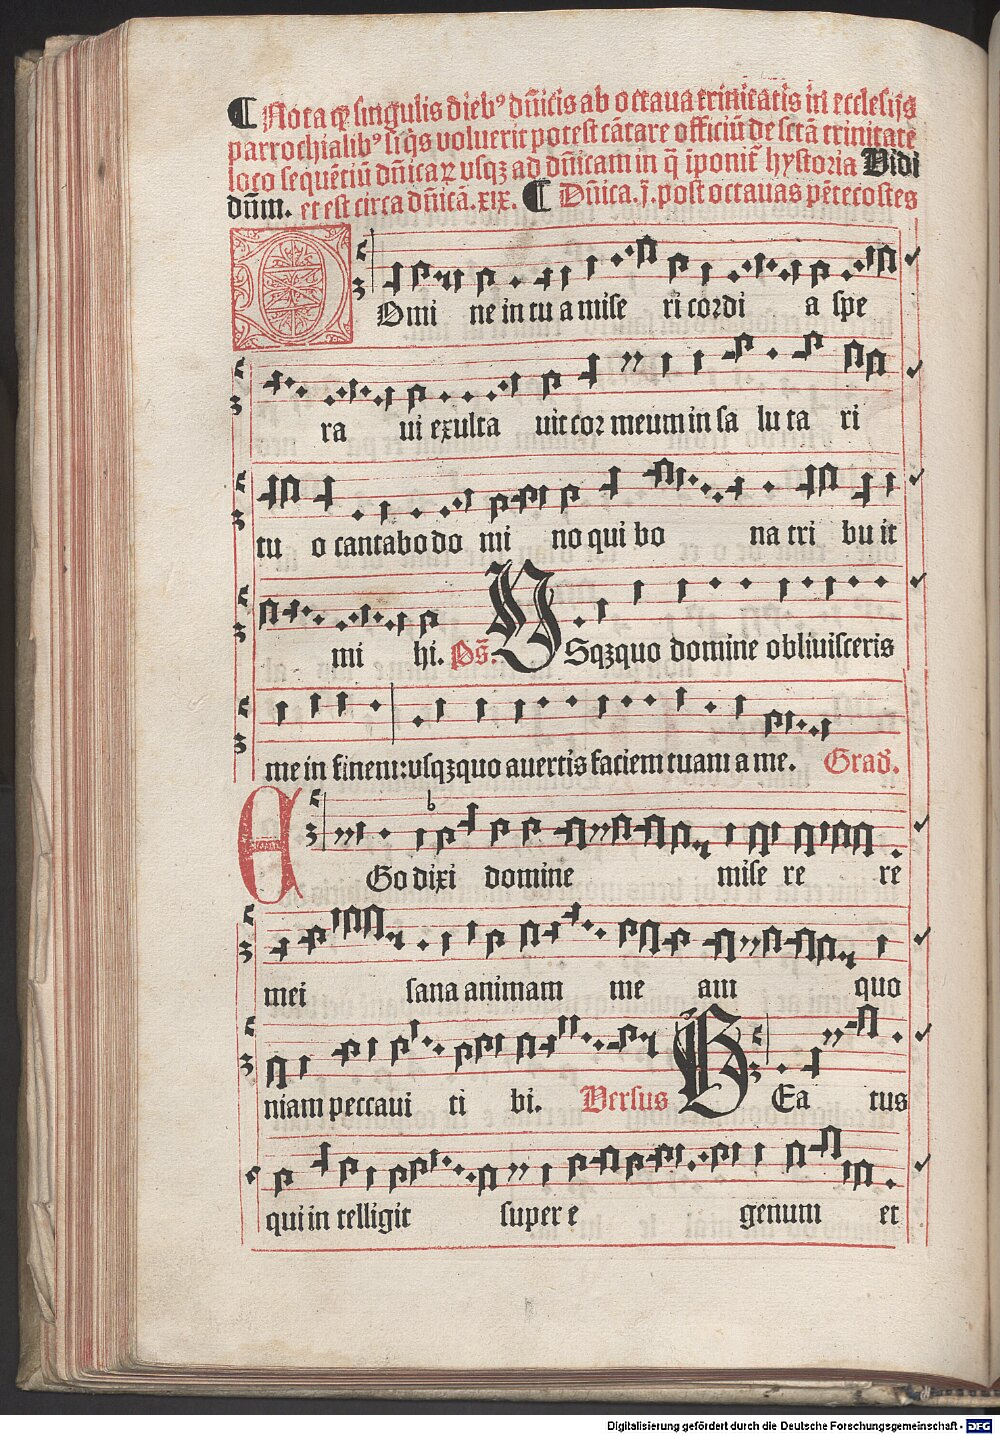 ¶ Nota ꝙ singulis dieb⁹ dn̄icis ab octaua trinitatis in ecclesijs
parrochialib⁹ si q̄s voluerit potest cātare officiū de sctā trinitate
loco sequētiū dn̄icaꝝ vsqꝫ ad dn̄icam in q̄ īponit̄ hystoria Vidi
dn̄m. et est circa dn̄icā. xix. ¶ Dn̄ica. j. post octauas pētecostes
DOmi ne in tu a mise ri cordi a spe
ra ui exulta uit cor meum in sa lu ta ri
tu o cantabo do mi no qui bo na tri bu it
mi hi. Ps̄. VSqꝫquo domine obliuisceris
me in finem: vsqꝫquo auertis faciem tuam a me. Grad̄.
EGo dixi domine mise re re
mei sana animam me am quo
niam peccaui ti bi. Versus BEa tus
qui in telligit super e genum et
Digitalisierung gefördert durch die Deutsche Forschungsgemeinschaft - DFG